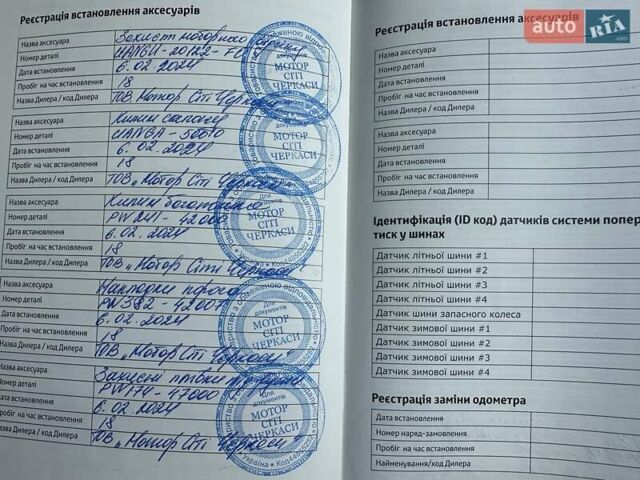 Реєстрація встановлення аксесуарів
Назва аксесуара Захист моторного
Номер деталі
Дата встановлення 6.02.2024
Пробіг на час встановлення 18
Назва Дилера / код Дилера ТОВ „Мотор Сіті Черкаси"
МОТОР
СІТІ
ЧЕРКАСИ
Назва аксесуара Килим салону
Номер деталі
Дата встановлення 6.02.2024
Пробіг на час встановлення 18
Назва Дилера / код Дилера ТОВ „Мотор Сіті Черкаси"
МОТОР
СІТІ
ЧЕРКАСИ
Назва аксесуара Килим багажника
Номер деталі PW241-42000
Дата встановлення 6.02.2024
Пробіг на час встановлення 18
Назва Дилера / код Дилера ТОВ „Мотор Сіти Черкаси"
Для
документів
МОТОР
СІТІ
ЧЕРКАСИ
Назва аксесуара Накладки порогів
Номер деталі PW382-42001
Дата встановлення 6.02.2024
Пробіг на час встановлення 18
Назва Дилера / код Дилера ТОВ „Мотор Сіті Черкаси"
документів
МОТОР
СІТІ
ЧЕРКАСИ
Назва аксесуара Захисні плівки під ручки
Номер деталі PW174-47000
Дата встановлення 6.02.2024
Пробіг на час встановлення 18
Назва Дилера / код Дилера ТОВ „Мотор Сіті Черкаси"
Для
документів
МОТОР
СІТІ
ЧЕРКАСИ
Україна
Реєстрація встановлення аксесуарів
Назва аксесуара
Номер деталі
Дата встановлення
Пробіг на час встановлення
Назва Дилера / код Дилера
Назва аксесуара
Номер деталі
Дата встановлення
Пробіг на час встановлення
Назва Дилера / код Дилера
Ідентифікація (ID код) датчиків системи попер
тиск у шинах
Датчик літньої шини #1
Датчик літньої шини #2
Датчик літньої шини #3
Датчик літньої шини #4
Датчик шини запасного колеса
Датчик зимової шини #1
Датчик зимової шини #2
Датчик зимової шини #3
Датчик зимової шини #4
Реєстрація заміни одометра
Дата встановлення
Номер наряд-замовлення
Пробіг на час встановлення
Найменування/код Дилера
auto RIA
.com